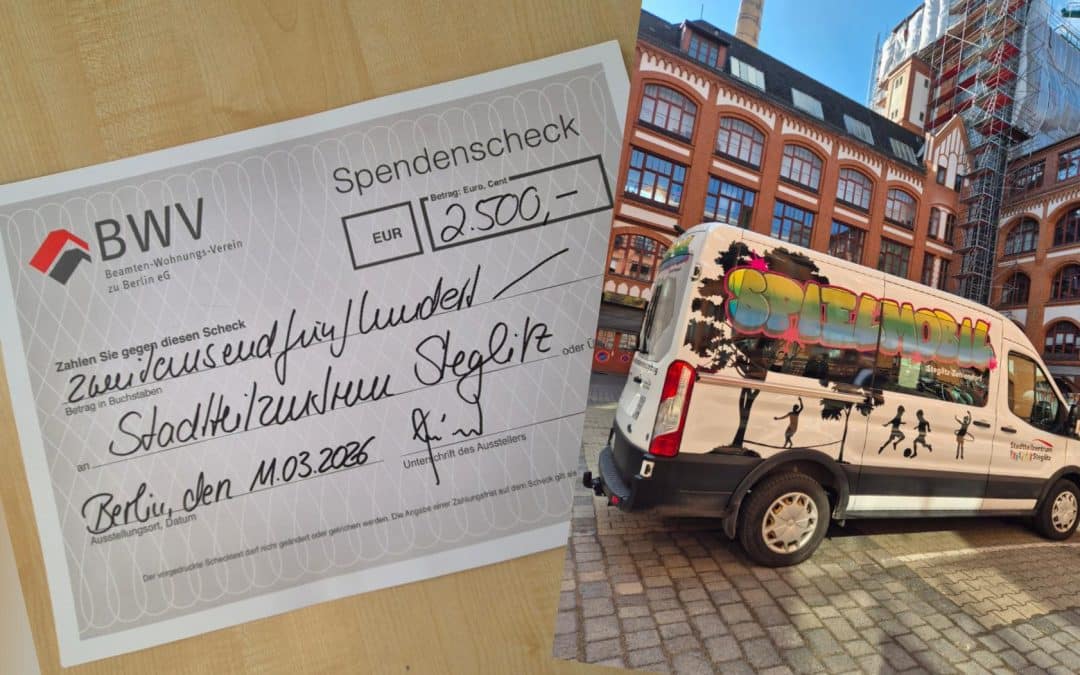 Spendenscheck
BWV
Beamten-Wohnungs-Verein
zu Berlin eG
EUR
Betrag: Euro, Cent
2.500,-
Zahlen Sie gegen diesen Scheck
zweitausendfünfhundert
Betrag in Buchstaben
an Stadtteilzentrum Steglitz oder Ü
Berlin, den 11.03.2026
Ausstellungsort, Datum
Unterschrift des Ausstellers
Der vorgedruckte Schecktext darf nicht geändert oder gestrichen werden. Die Angabe einer Zahlungsfrist auf dem Scheck gilt als
SPIELMOBIL
Steglitz
Stadtteilzentrum
Steglitz